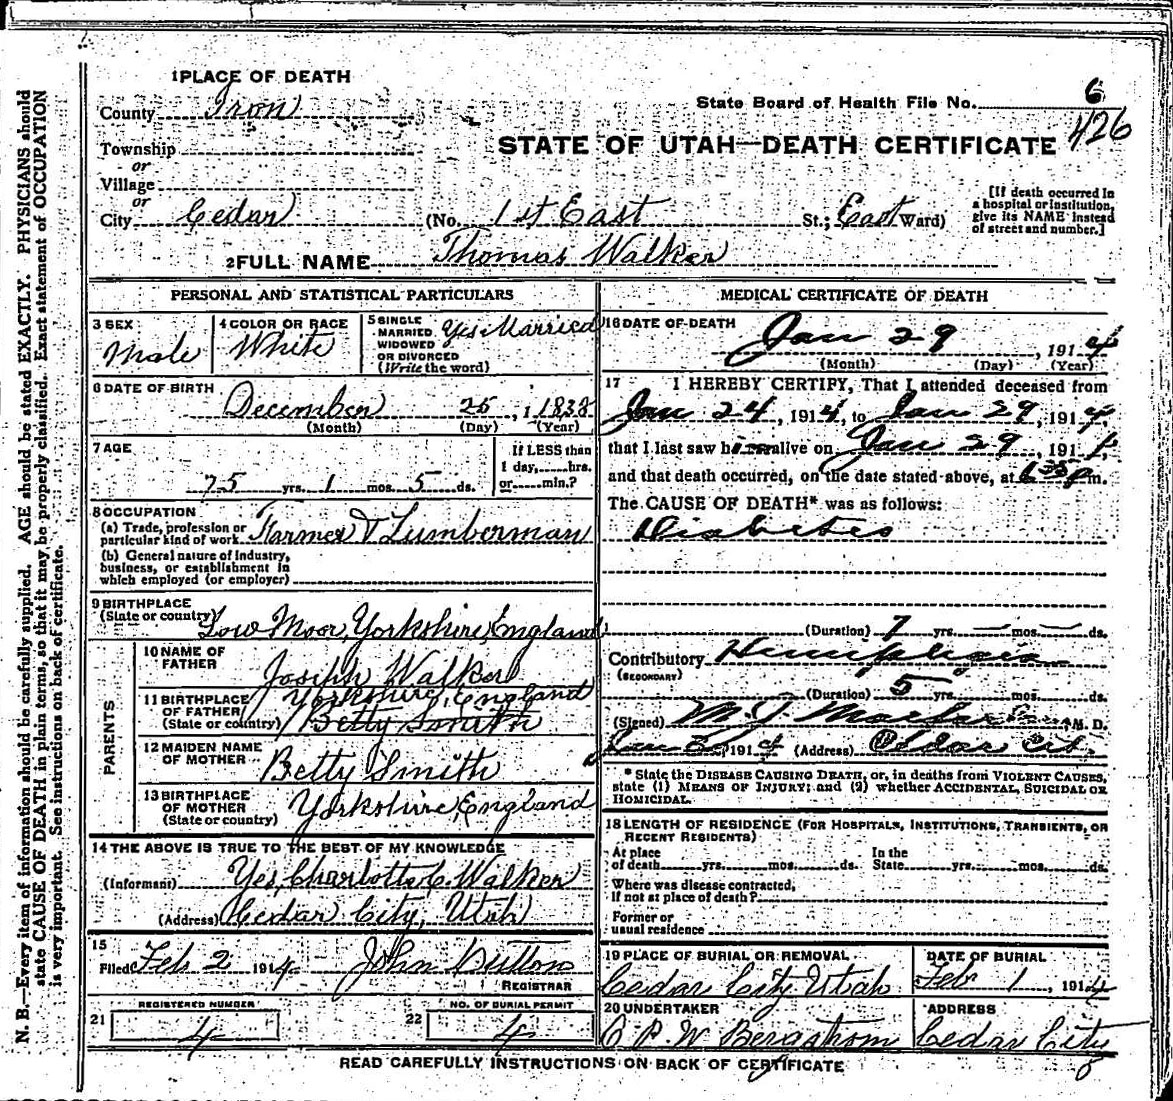 1 PLACE OF DEATH
County Iron
State Board of Health File No. 6
426
STATE OF UTAH—DEATH CERTIFICATE
Township
or
Village
or
City Cedar (No. 1st East St.; East Ward)
[If death occurred in a hospital or institution, give its NAME instead of street and number.]
2 FULL NAME Thomas Walker
PERSONAL AND STATISTICAL PARTICULARS
3 SEX
Male
4 COLOR OR RACE
White
5 SINGLE MARRIED WIDOWED OR DIVORCED (Write the word)
Yes Married
6 DATE OF BIRTH
December 25, 1838
(Month) (Day) (Year)
7 AGE
75 yrs. 1 mos. 5 ds.
If LESS than 1 day, hrs. or min.?
8 OCCUPATION
(a) Trade, profession or particular kind of work Farmer & Lumberman
(b) General nature of industry, business, or establishment in which employed (or employer)
9 BIRTHPLACE
(State or country) Low Moor, Yorkshire, England
PARENTS
10 NAME OF FATHER Joseph Walker
11 BIRTHPLACE OF FATHER (State or country) Yorkshire, England
Betty Smith
12 MAIDEN NAME OF MOTHER Betty Smith
13 BIRTHPLACE OF MOTHER (State or country) Yorkshire, England
14 THE ABOVE IS TRUE TO THE BEST OF MY KNOWLEDGE
(Informant) Yes, Charlotte C. Walker
(Address) Cedar City, Utah
15
Filed Feb 2 1914 John Dutton
REGISTRAR
REGISTERED NUMBER
21 4
NO. OF BURIAL PERMIT
22 4
MEDICAL CERTIFICATE OF DEATH
16 DATE OF DEATH
Jan 29, 1914
(Month) (Day) (Year)
17 I HEREBY CERTIFY, That I attended deceased from
Jan 24, 1914, to Jan 29, 1914,
that I last saw him alive on Jan 29, 191
and that death occurred, on the date stated above, at 6 35 p m.
The CAUSE OF DEATH* was as follows:
Diabetes
(Duration) 7 yrs. — mos. — ds.
Contributory
(SECONDARY)
(Duration) 5 yrs. mos. ds.
(Signed) M. D.
Jan 191 4 (Address) Cedar City
* State the DISEASE CAUSING DEATH, or, in deaths from VIOLENT CAUSES,
state (1) MEANS OF INJURY; and (2) whether ACCIDENTAL, SUICIDAL OR
HOMICIDAL.
18 LENGTH OF RESIDENCE (FOR HOSPITALS, INSTITUTIONS, TRANSIENTS, OR
RECENT RESIDENTS)
At place of death yrs. mos. ds. In the State yrs. mos. ds.
Where was disease contracted,
if not at place of death?
Former or
usual residence
19 PLACE OF BURIAL OR REMOVAL
Cedar City Utah
DATE OF BURIAL
Feb 1, 1914
20 UNDERTAKER
C P. W Bergstrom
ADDRESS
Cedar City
READ CAREFULLY INSTRUCTIONS ON BACK OF CERTIFICATE
N. B.—Every item of information should be carefully supplied. AGE should be stated EXACTLY. PHYSICIANS should
state CAUSE OF DEATH in plain terms, so that it may be properly classified. Exact statement of OCCUPATION
is very important. See instructions on back of certificate.